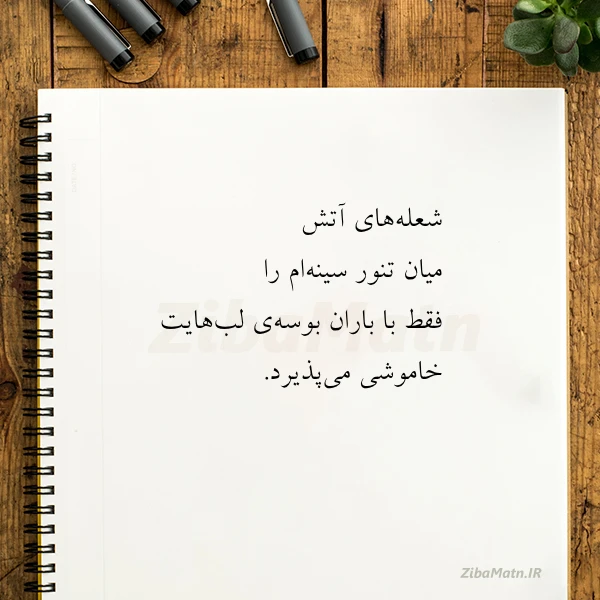 شعله‌های آتش
میان تنور سینه‌ام را
فقط با باران بوسه‌ی لب‌هایت
خاموشی می‌پذیرد.
ZibaMatn
ZibaMatn.IR